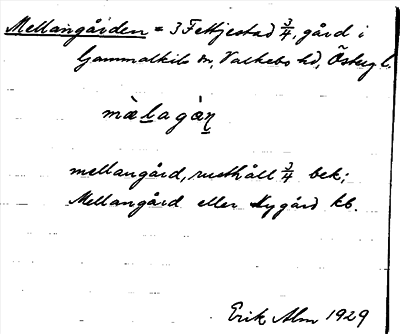 Mellangården = 3 Fettjestad 3/4, gård i
Gammalkils sn, Valkebo hd, Östergl.
mæ̀lagàn
mellangård, rusthåll 3/4 bek;
Mellangård eller Nygård kb.
Erik Alm 1929